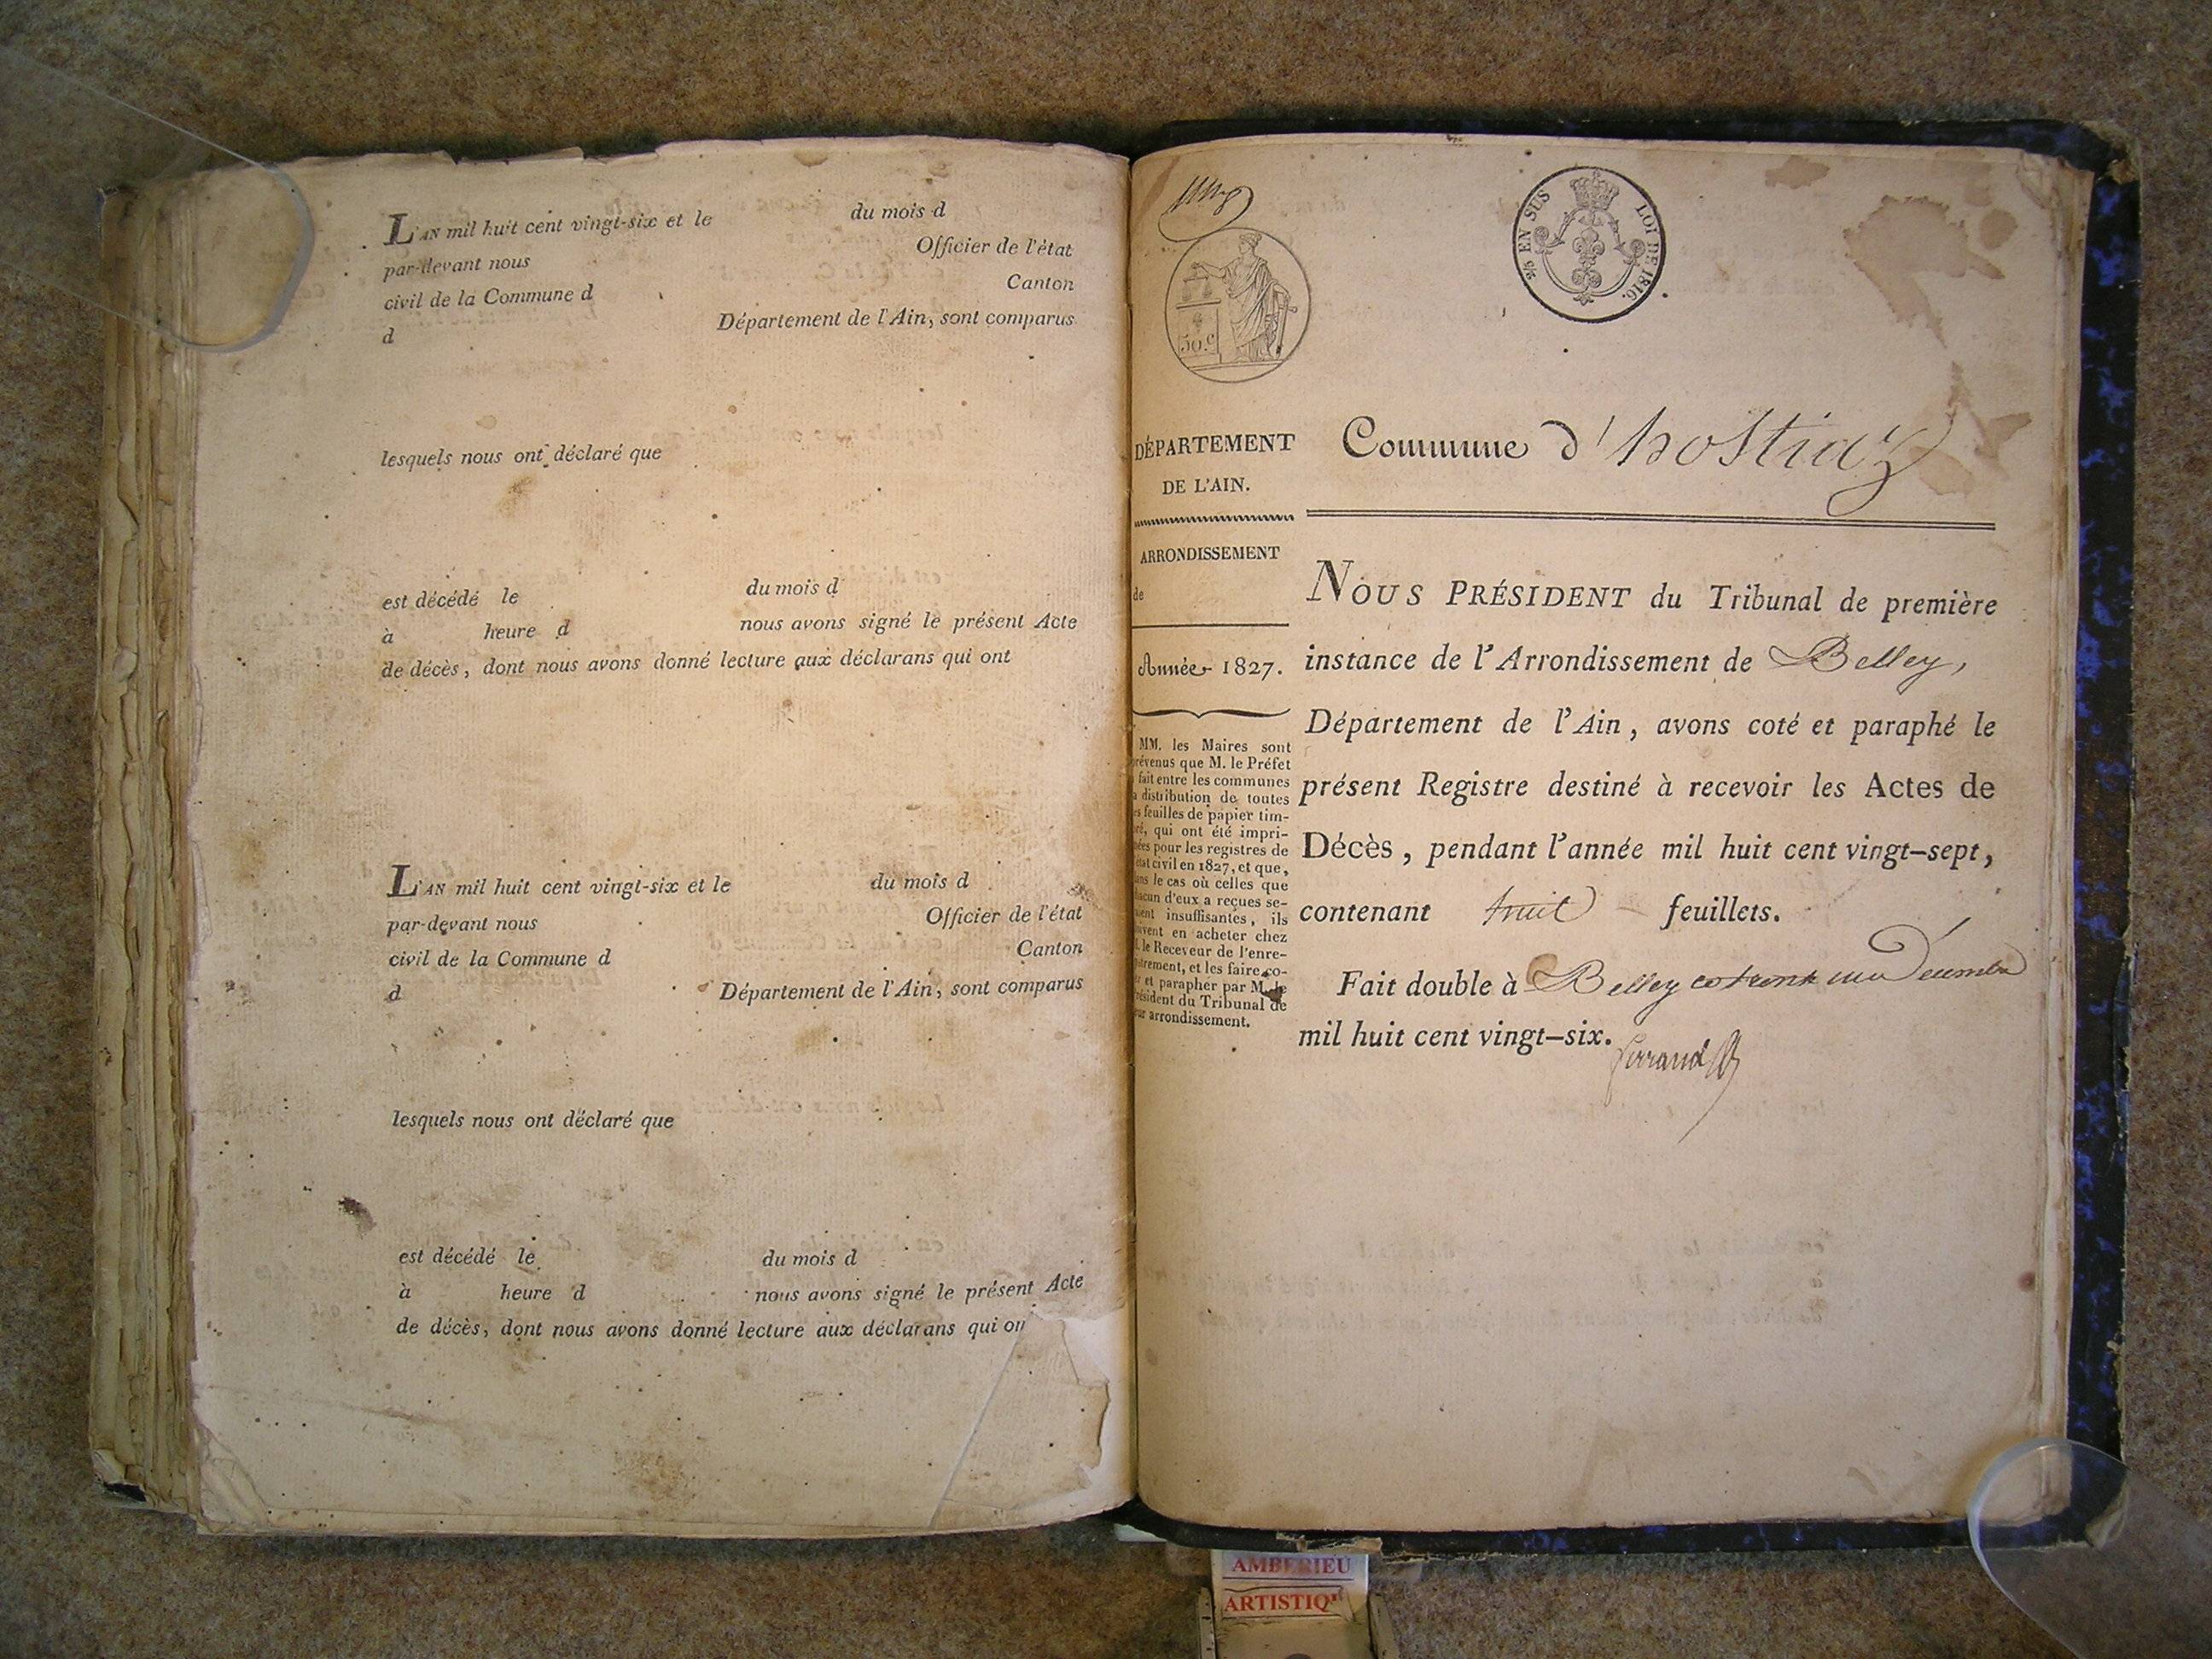 L'AN mil huit cent vingt-six et le du mois d
par-devant nous Officier de l'état
civil de la Commune d Canton
d Département de l'Ain, sont comparus
lesquels nous ont déclaré que
est décédé le du mois d
à heure d nous avons signé le présent Acte
de décès, dont nous avons donné lecture aux déclarans qui ont
L'AN mil huit cent vingt-six et le du mois d
par-devant nous Officier de l'état
civil de la Commune d Canton
d Département de l'Ain, sont comparus
lesquels nous ont déclaré que
est décédé le du mois d
à heure d nous avons signé le présent Acte
de décès, dont nous avons donné lecture aux déclarans qui on
50.c
2/5 EN SUS LOI DE 1816.
DÉPARTEMENT
DE L'AIN.
ARRONDISSEMENT
de
Année 1827.
MM. les Maires sont
révenus que M. le Préfet
fait entre les communes
a distribution de toutes
es feuilles de papier tim-
ré, qui ont été impri-
ées pour les registres de
état civil en 1827, et que,
ans le cas où celles que
hacun d'eux a reçues se-
ient insuffisantes, ils
oivent en acheter chez
. le Receveur de l'enre-
istrement, et les faire co-
er et parapher par M. le
résident du Tribunal de
ur arrondissement.
Commune d'hostiaz
NOUS PRÉSIDENT du Tribunal de première
instance de l'Arrondissement de Belley,
Département de l'Ain, avons coté et paraphé le
présent Registre destiné à recevoir les Actes de
Décès, pendant l'année mil huit cent vingt-sept,
contenant huit feuillets.
Fait double à Belley ce trente un Décembre
mil huit cent vingt-six.
AMBERIEU
ARTISTIQ